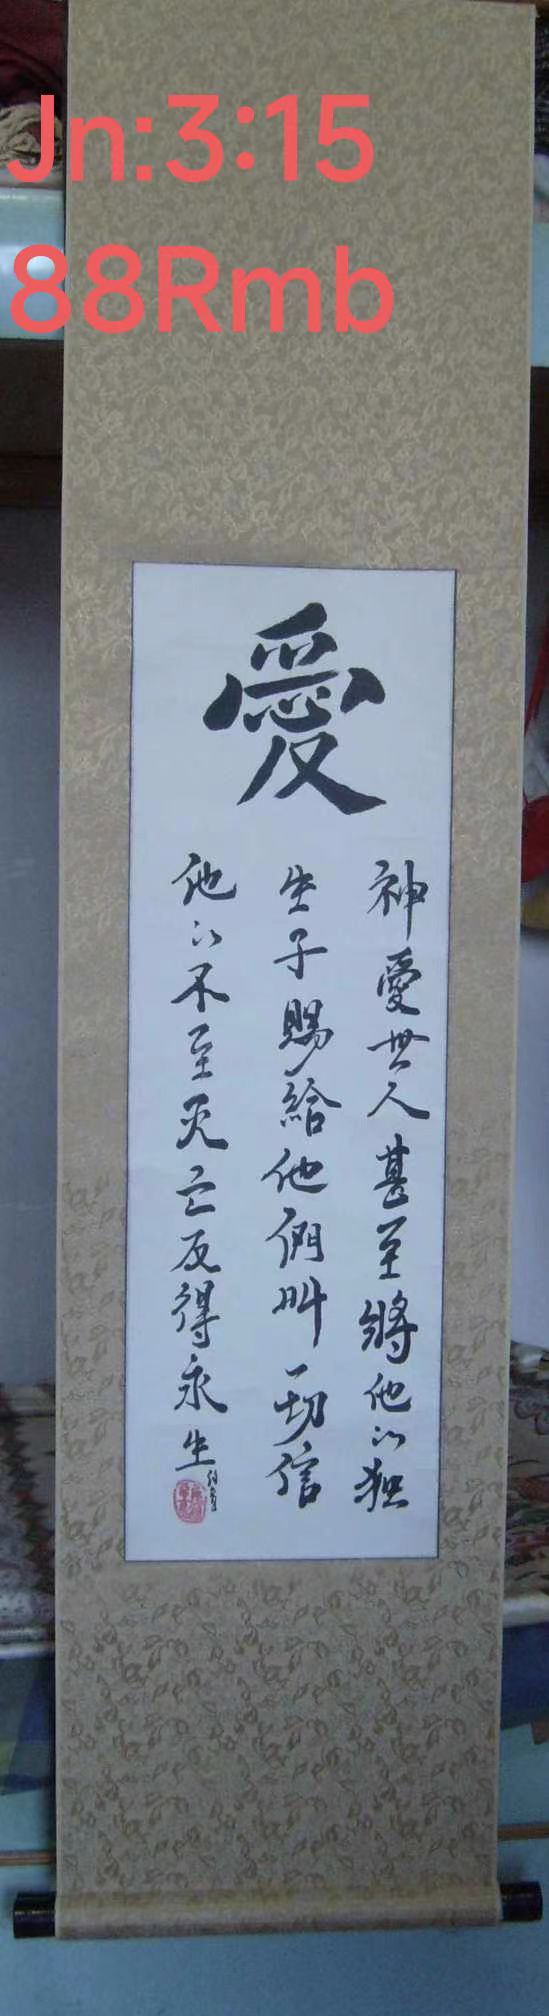 Jn:3:15
88Rmb
愛
神愛世人甚至將他以独
生子賜給他們叫一切信
他以不至灭亡反得永生